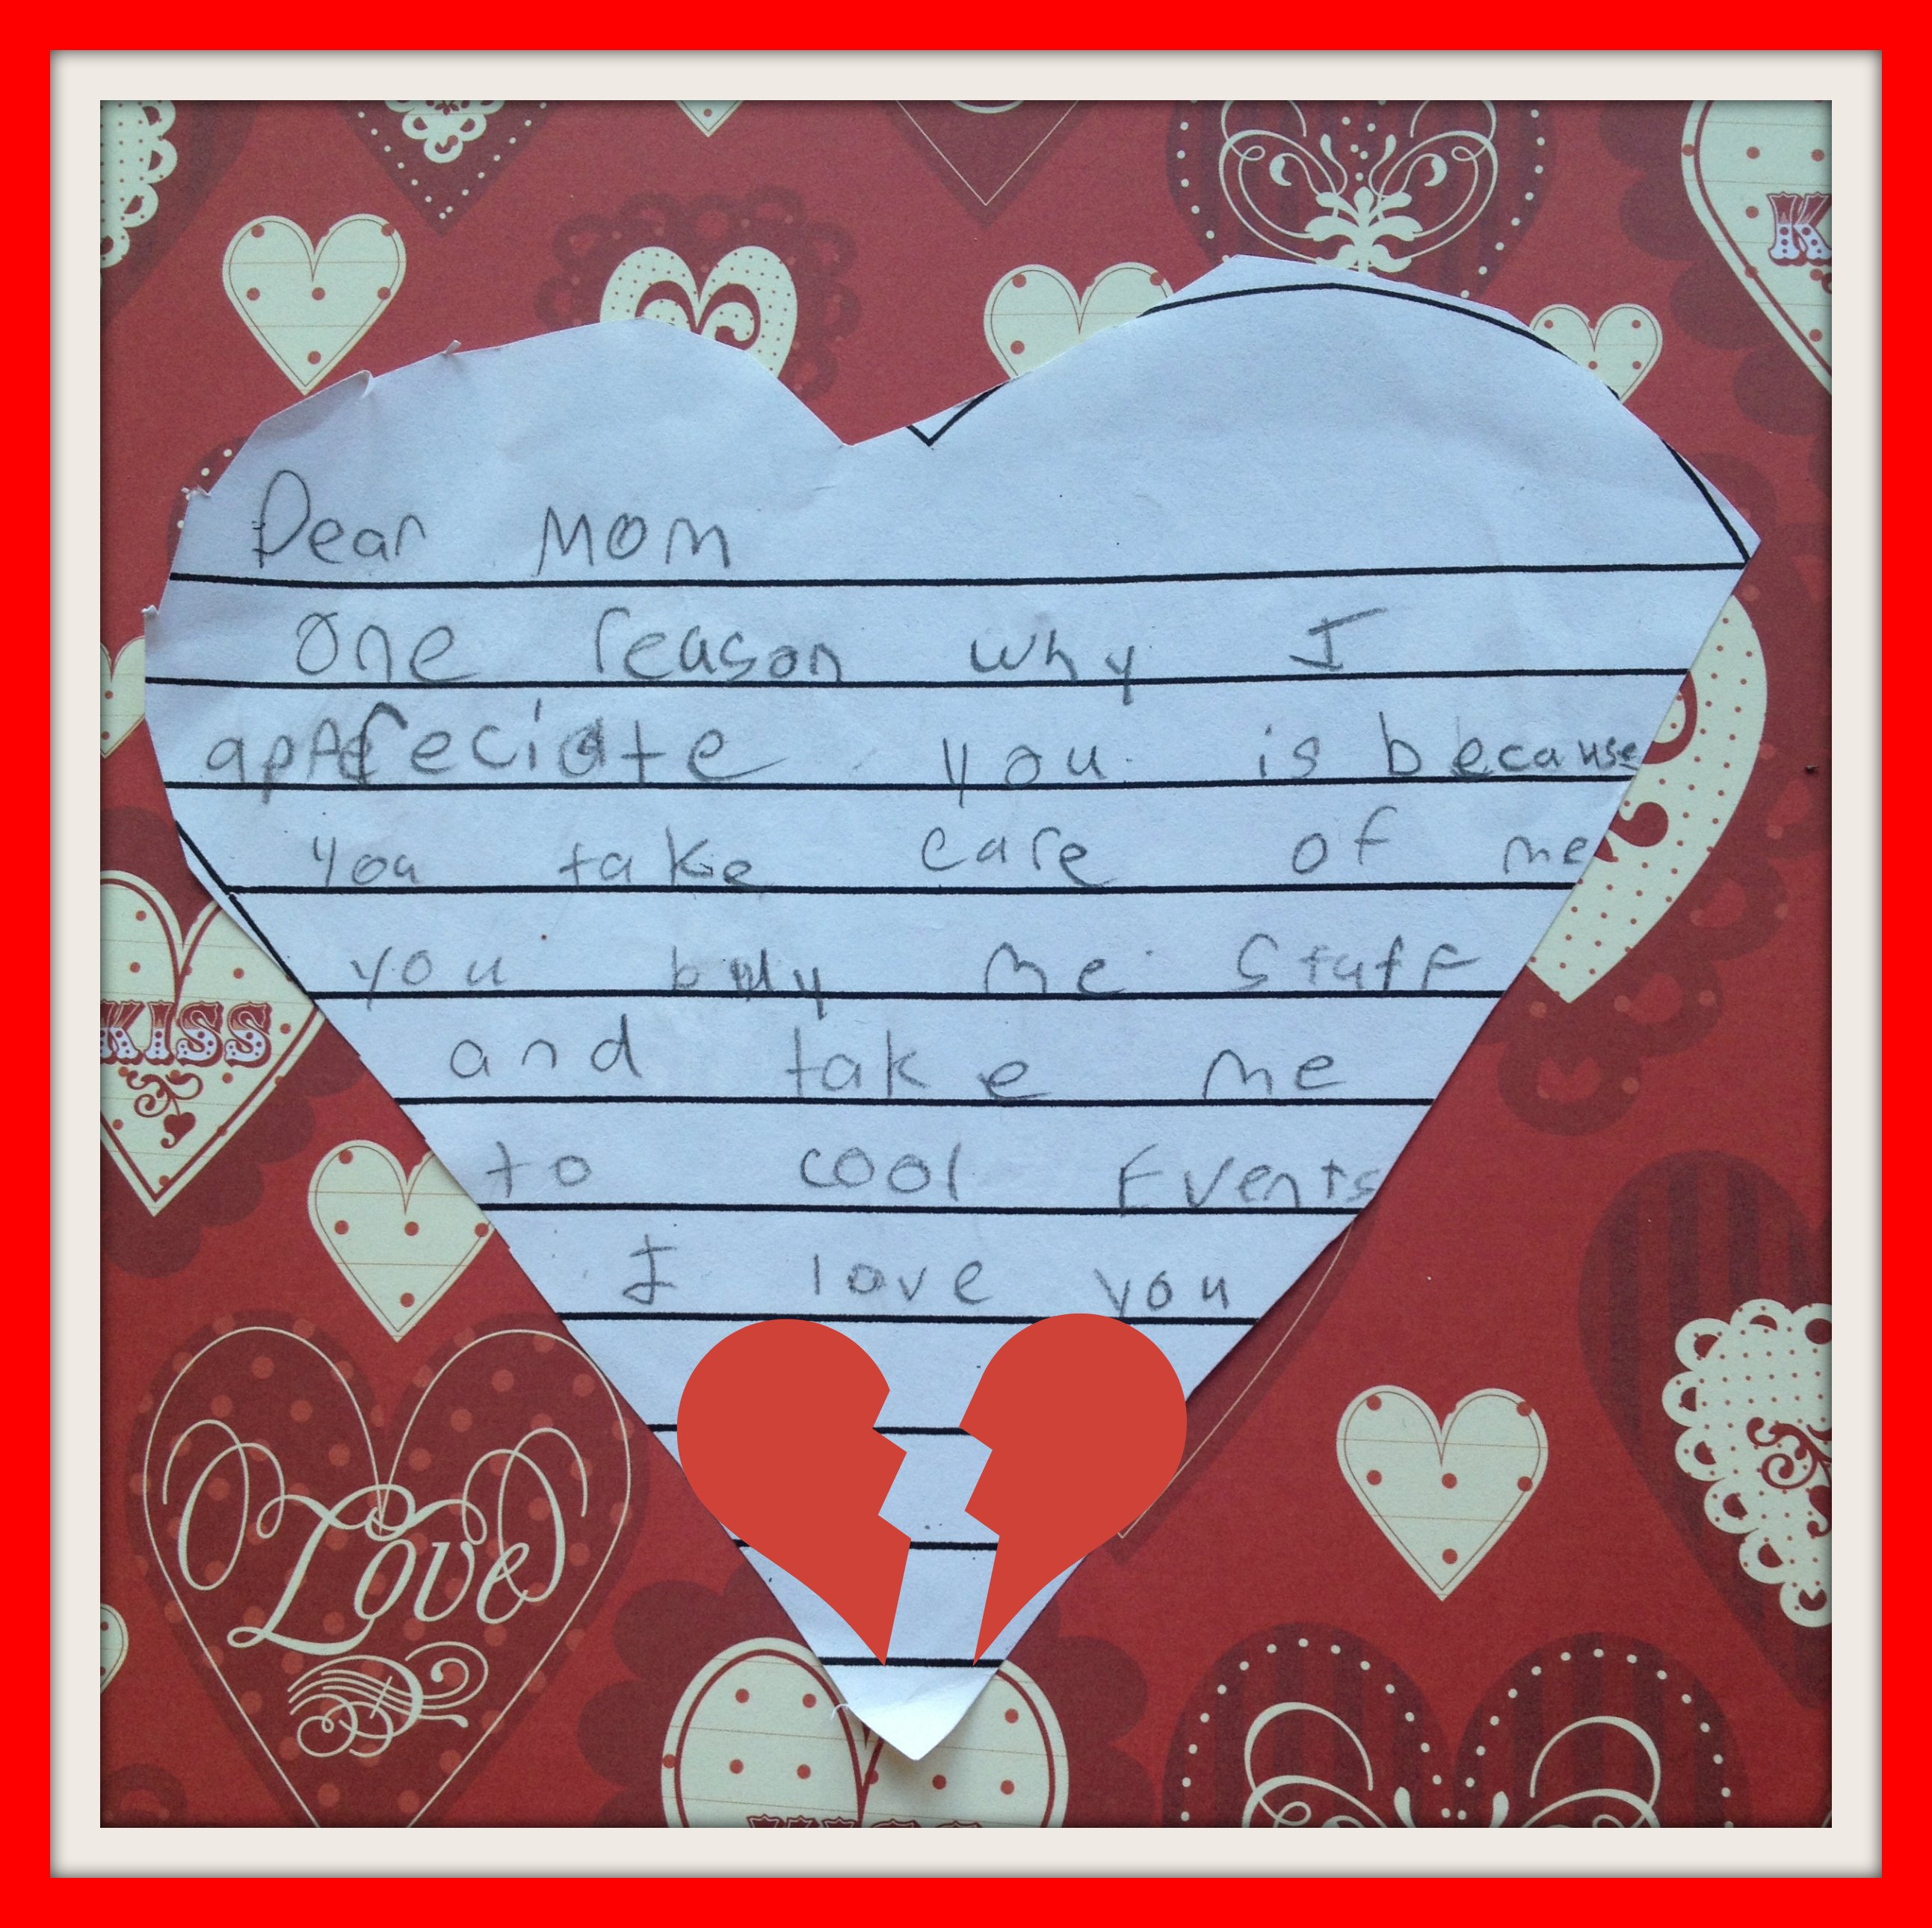 K
Dear Mom
one reason why I
appreciate you is because
you take care of me
you buy me stuff
and take me
to cool Events
I love you
KISS
Love